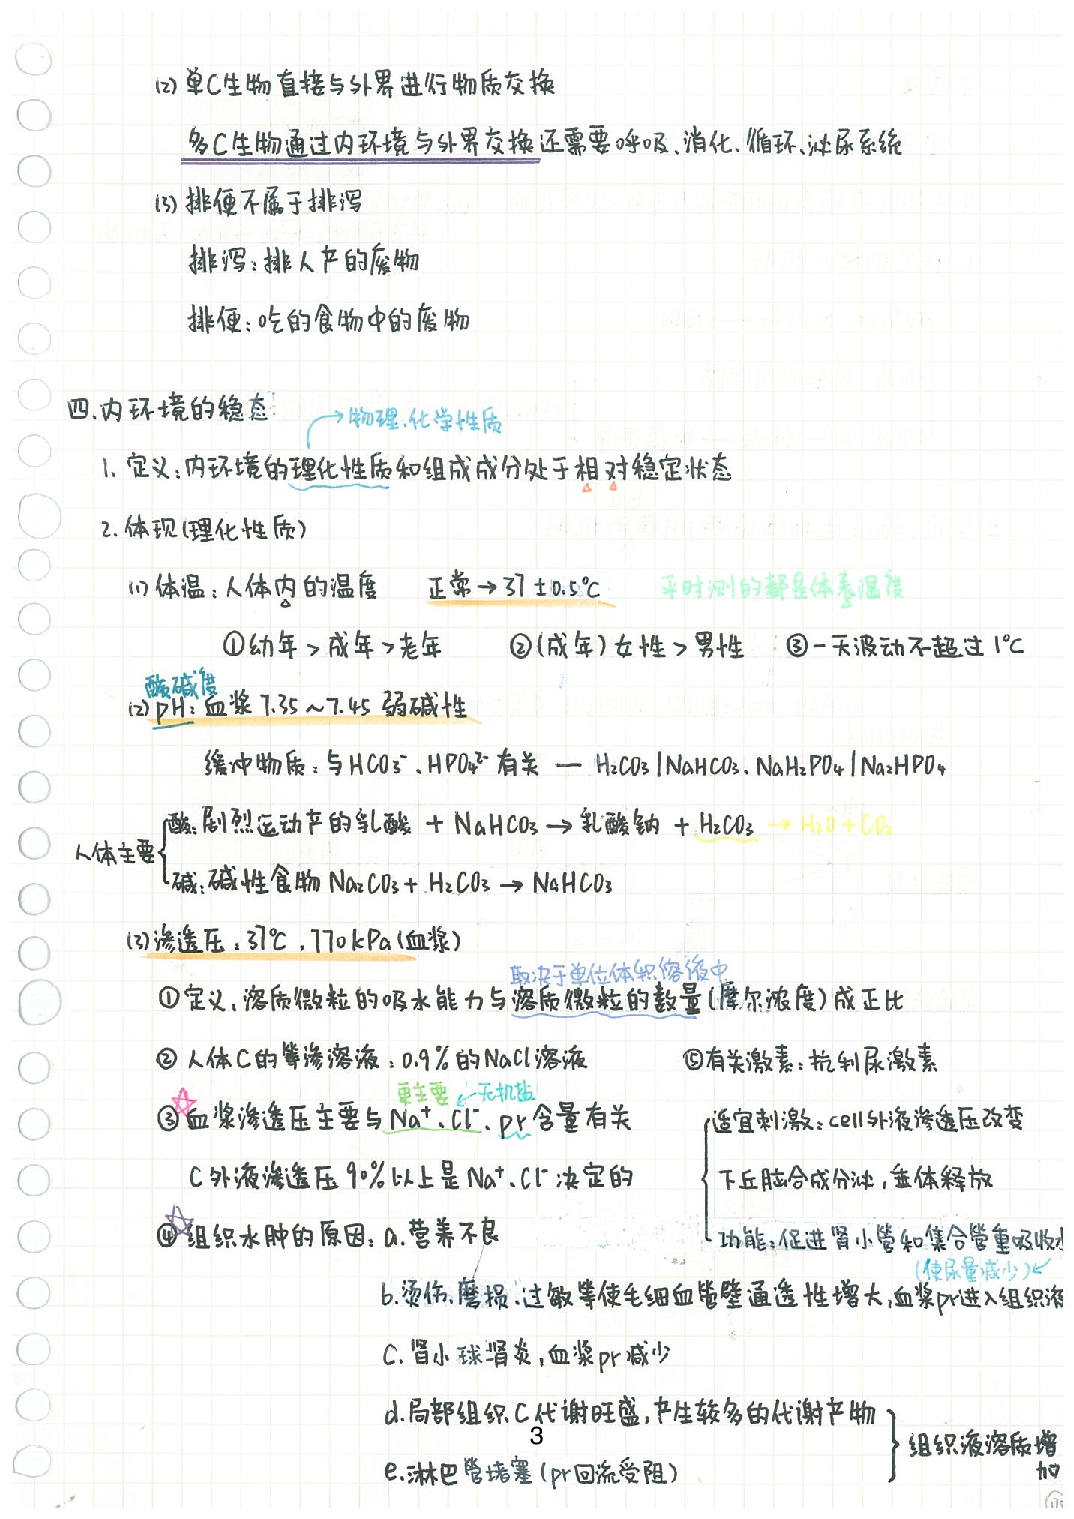 (2) 单C生物直接与外界进行物质交换
多C生物通过内环境与外界交换还需要呼吸、消化、循环、泌尿系统
(3) 排便不属于排泻
排泻：排人产的废物
排便：吃的食物中的废物
四.内环境的稳态
→物理、化学性质
1. 定义：内环境的理化性质和组成成分处于相对稳定状态
2. 体现(理化性质)
(1) 体温：人体内的温度 正常→37±0.5℃ 平时测的都是体表温度
①幼年>成年>老年 ②(成年)女性>男性 ③一天波动不超过1℃
酸碱度
(2) pH：血浆7.35~7.45 弱碱性
缓冲物质：与HCO₃⁻、HPO₄²⁻有关 — H₂CO₃/NaHCO₃、NaH₂PO₄/Na₂HPO₄
人体主要
酸：剧烈运动产的乳酸 + NaHCO₃ → 乳酸钠 + H₂CO₃ → H₂O + CO₂
碱：碱性食物 Na₂CO₃ + H₂CO₃ → NaHCO₃
(3) 渗透压：37℃、770kPa(血浆)
取决于单位体积溶液中
①定义：溶质微粒的吸水能力与溶质微粒的数量(摩尔浓度)成正比
②人体C的等渗溶液：0.9%的NaCl溶液 ⑤有关激素：抗利尿激素
更主要 ←无机盐
☆③血浆渗透压主要与Na⁺、Cl⁻、pr含量有关 适宜刺激：cell外液渗透压改变
C外液渗透压90%以上是Na⁺、Cl⁻决定的 下丘脑合成分泌，垂体释放
☆④组织水肿的原因：a.营养不良 功能：促进肾小管和集合管重吸收水
(使尿量减少)↙
b.烫伤、磨损、过敏等使毛细血管壁通透性增大，血浆pr进入组织液
c.肾小球肾炎，血浆pr减少
d.局部组织C代谢旺盛，产生较多的代谢产物
3
组织液溶质增加
e.淋巴管堵塞(pr回流受阻)